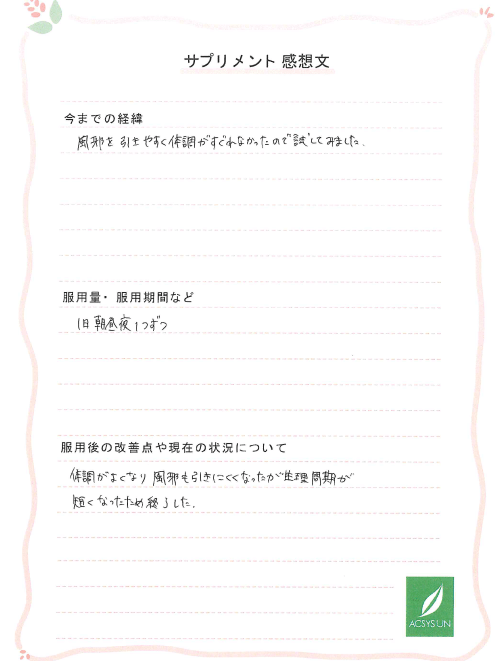 サプリメント 感想文
今までの経緯
風邪を引きやすく体調がすぐれなかったので試してみました.
服用量・服用期間など
1日 朝昼夜1つずつ
服用後の改善点や現在の状況について
体調がよくなり風邪も引きにくくなったが生理周期が
短くなったため終了した.
ACSYSUN